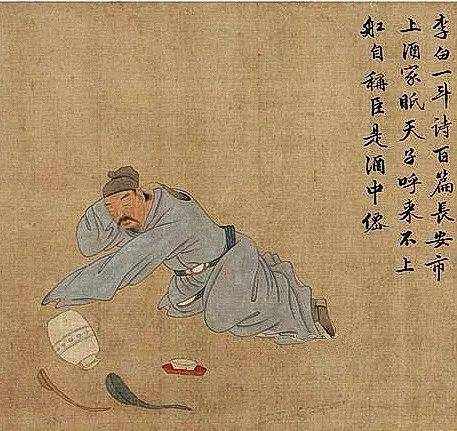 李白一斗詩百篇長安市
上酒家眠天子呼来不上
舡自稱臣是酒中僊